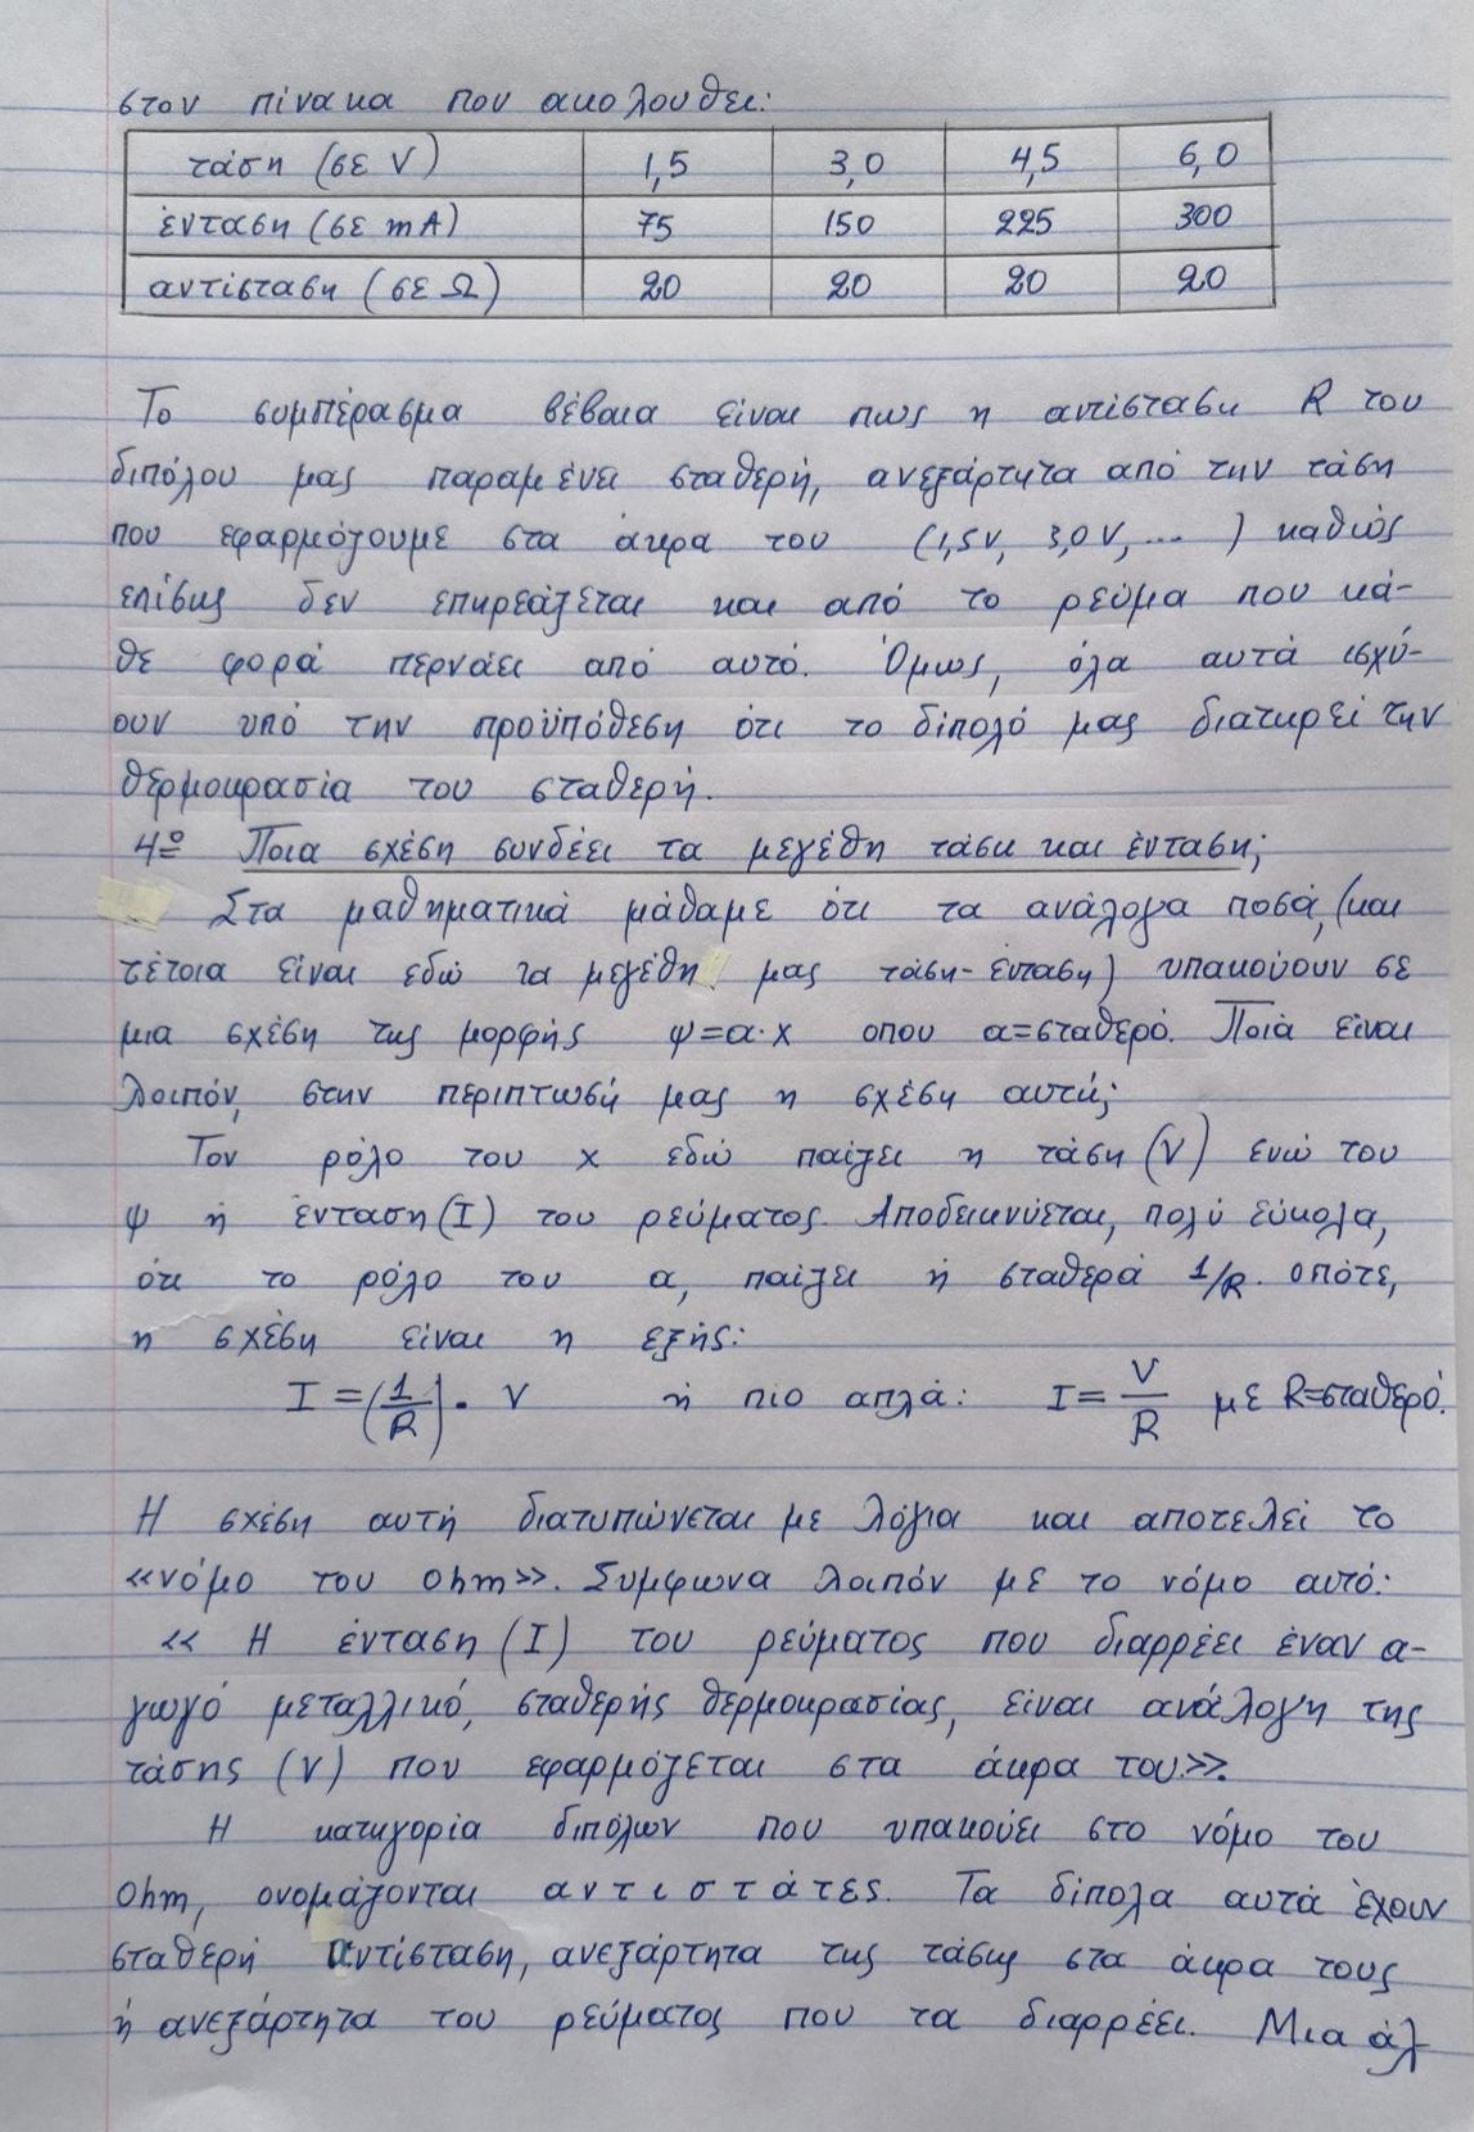 στον πίνακα που ακολουθει:
τάση (σε V) 1,5 3,0 4,5 6,0
ένταση (σε mA) 75 150 225 300
αντίσταση (σε Ω) 20 20 20 20
Το συμπέρασμα βέβαια είναι πως η αντίσταση R του
διπόλου μας παραμένει σταθερή, ανεξάρτητα από την τάση
που εφαρμόζουμε στα άκρα του (1,5V, 3,0V, ... ) καθώς
επίσης δεν επηρεάζεται και από το ρεύμα που κά-
θε φορά περνάει από αυτό. Όμως, όλα αυτά ισχύ-
ουν υπό την προϋπόθεση ότι το δίπολό μας διατηρεί την
θερμοκρασία του σταθερή.
4ο Ποια σχέση συνδέει τα μεγέθη τάση και ένταση;
Στα μαθηματικά μάθαμε ότι τα ανάλογα ποσά, (και
τέτοια είναι εδώ τα μεγέθη μας τάση-ένταση) υπακούουν σε
μια σχέση της μορφής ψ=α·x οπου α=σταθερό. Ποιά είναι
λοιπόν, στην περιπτωσή μας η σχέση αυτή;
Τον ρόλο του x εδώ παίζει η τάση (V) ενώ του
ψ ή ένταση (I) του ρεύματος. Αποδεικνύεται, πολύ εύκολα,
ότι το ρόλο του α, παίζει ή σταθερά 1/R. οπότε,
η σχέση είναι η εξής:
I = (1/R) · V ή πιο απλά: I = V/R με R=σταθερό.
Η σχέση αυτή διατυπώνεται με λόγια και αποτελεί το
«νόμο του Ohm». Συμφωνα λοιπόν με το νόμο αυτό:
« Η ένταση (I) του ρεύματος που διαρρέει έναν α-
γωγό μεταλλικό, σταθερής θερμοκρασίας, είναι ανάλογη της
τάσης (V) που εφαρμόζεται στα άκρα του».
Η κατηγορία διπόλων που υπακούει στο νόμο του
Ohm, ονομάζονται αντιστάτες. Τα δίπολα αυτά έχουν
σταθερή αντίσταση, ανεξάρτητα της τάσης στα άκρα τους
ή ανεξάρτητα του ρεύματος που τα διαρρέει. Μια άλ-